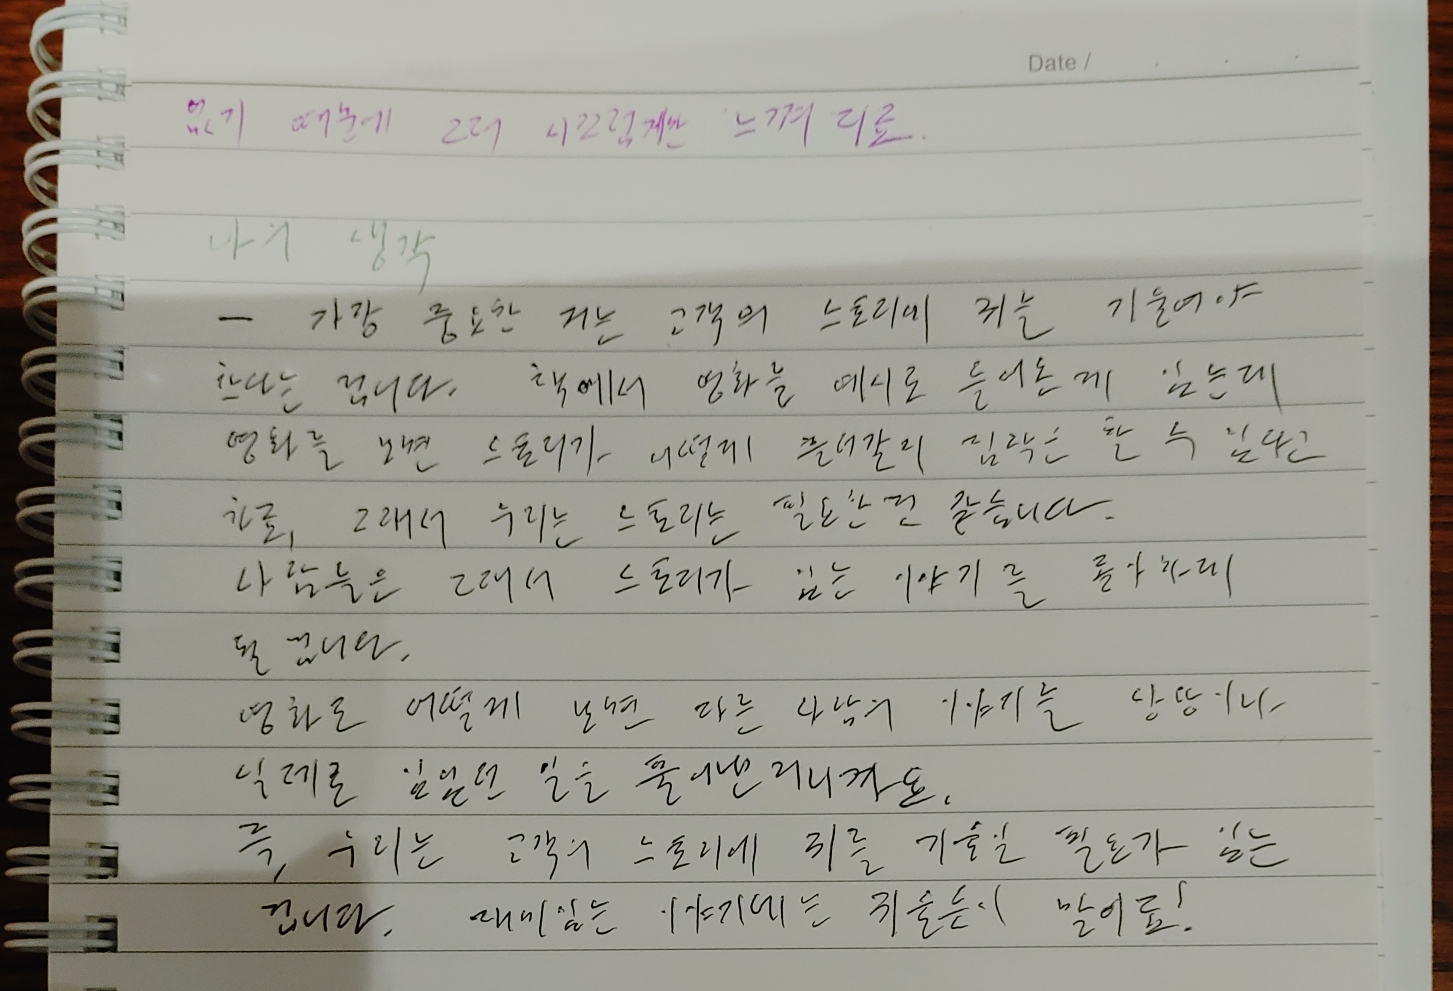 Date /
없기 때문에 그저 시끄럽게만 느껴지죠.
나의 생각
- 가장 중요한 거는 고객의 스토리에 귀를 기울여야
한다는 겁니다. 책에서 영화를 예시로 들어논게 있는데
영화를 보면 스토리가 어떻게 흘러갈지 짐작은 할 수 있다고
하죠, 그래서 우리는 스토리는 필요한건 같습니다.
사람들은 그래서 스토리가 있는 이야기를 좋아하게
된 겁니다.
영화도 어떻게 보면 다른 사람의 이야기를 상상이나
실제로 있었던 일을 풀어낸거니까요.
즉, 우리는 고객의 스토리에 귀를 기울일 필요가 있는
겁니다. 재미있는 이야기에는 귀를 말이죠!